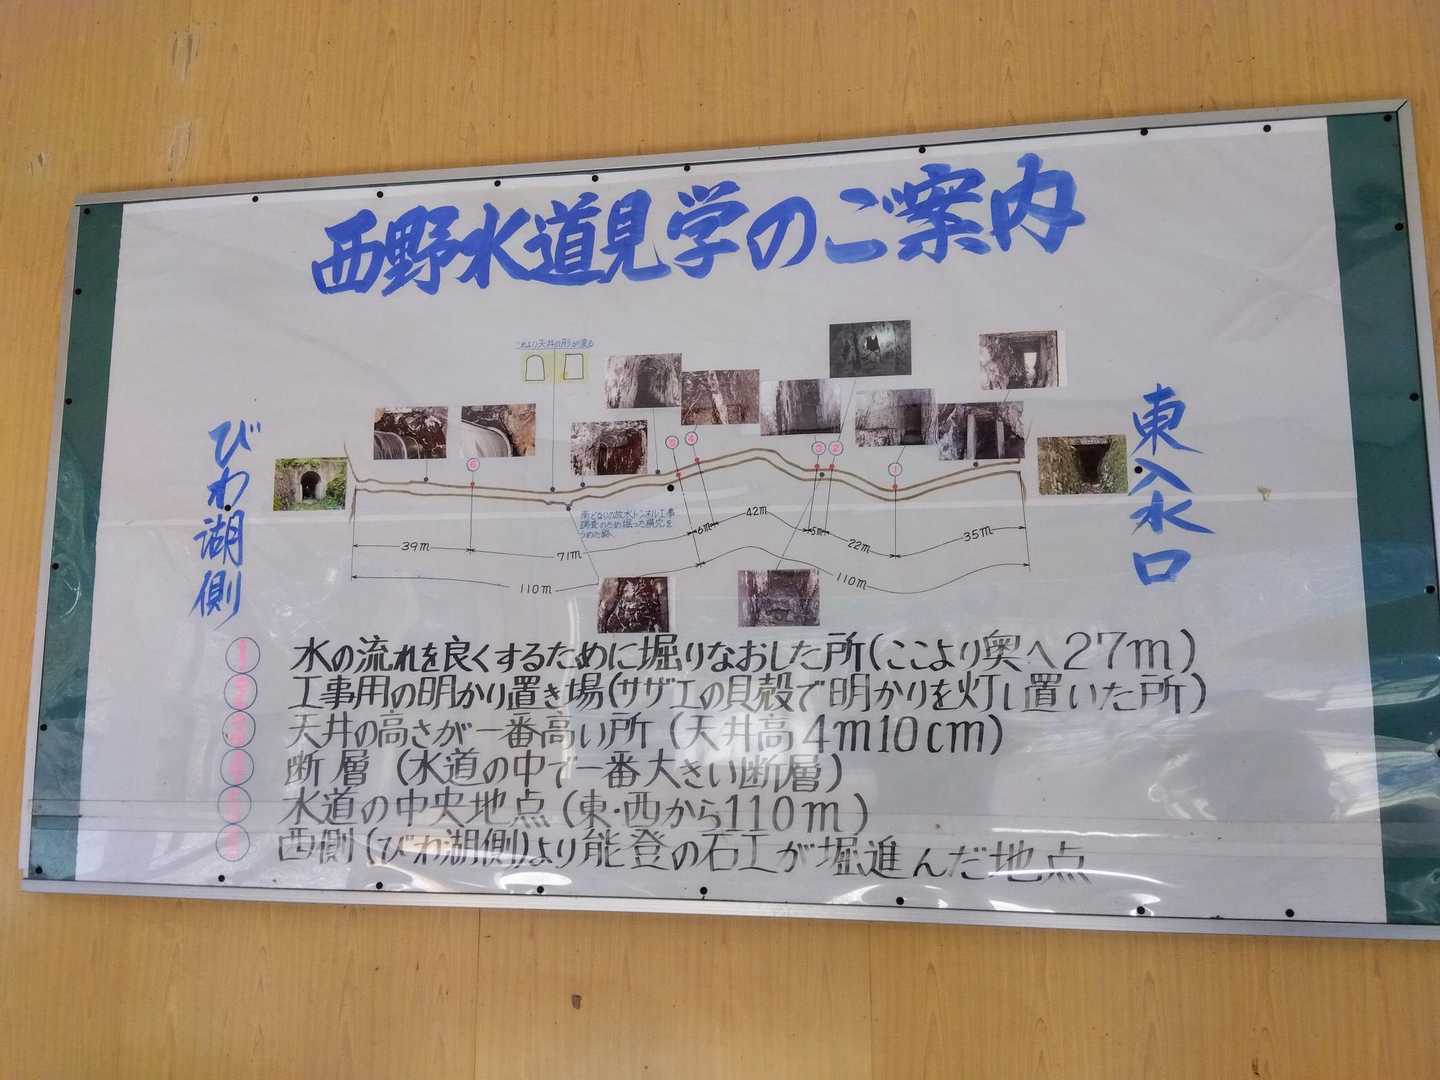 西野水道見学のご案内
これより天井の形が変る
びわ湖側
東入水口
⑥
⑤
④
③
②
①
新となりの放水トンネル工事
調査のため掘った横穴を
うめた跡
39m
71m
6m
42m
5m
22m
35m
110m
110m
① 水の流れを良くするために堀りなおした所(ここより奥へ27m)
② 工事用の明かり置き場(サザエの貝殻で明かりを灯し置いた所)
③ 天井の高さが一番高い所(天井高4m10cm)
④ 断層(水道の中で一番大きい断層)
⑤ 水道の中央地点(東・西から110m)
西側(びわ湖側)より能登の石工が堀進んだ地点